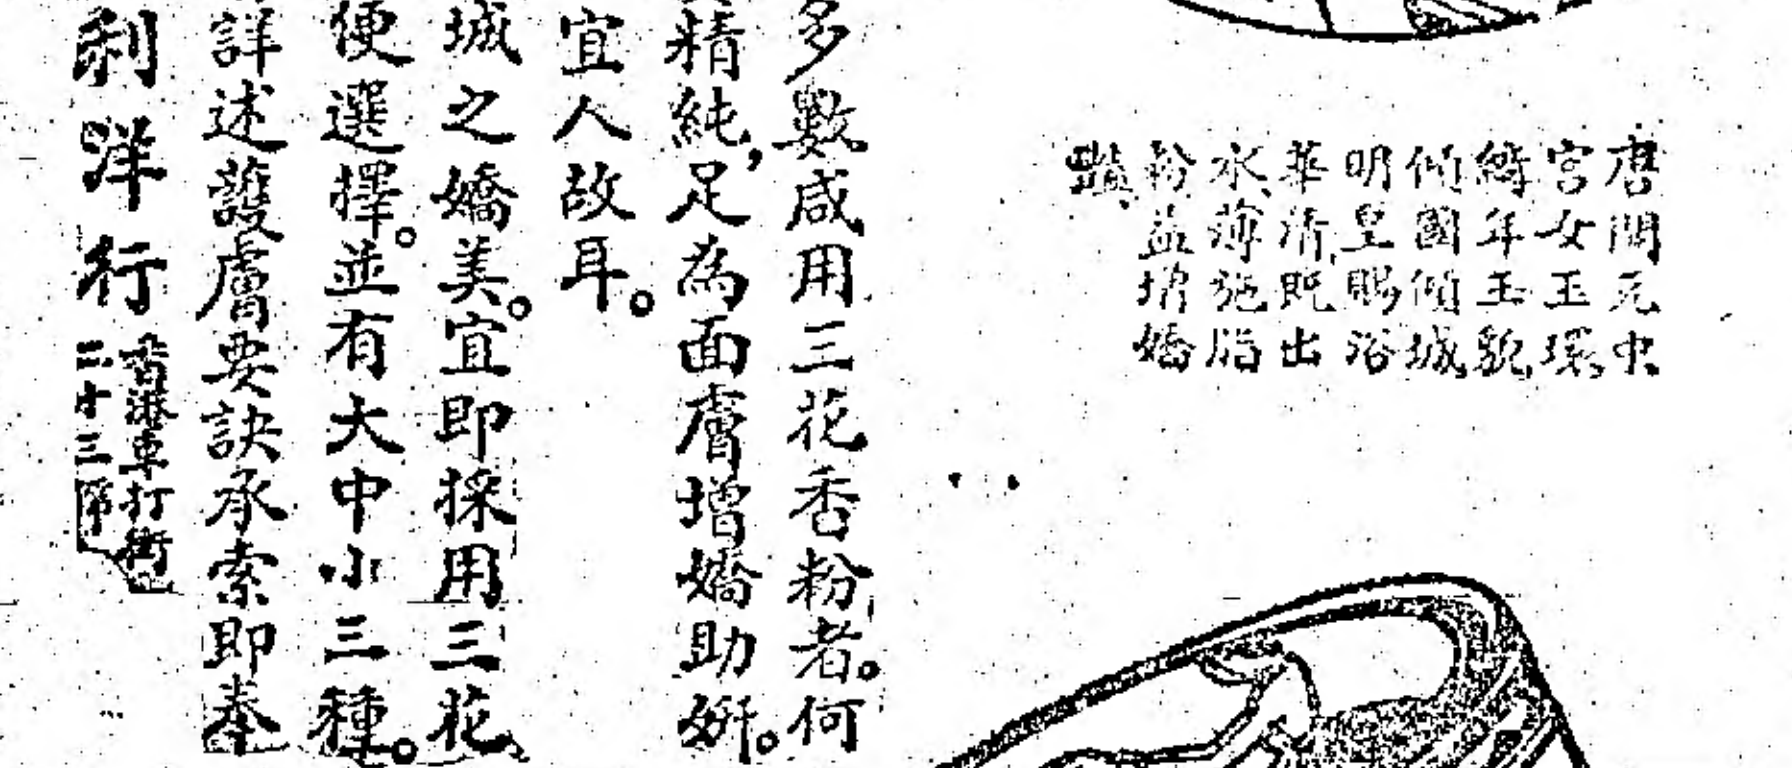 唐開元中
宮女玉環、
綺年玉貌、
傾國傾城、
明皇賜浴
華清、既出
水、薄施脂
粉益增嬌
豔、
多數咸用三花香粉者。何
精純，足為面膚增嬌助妍。
宜人故耳。
城之嬌美。宜即採用三花、
便選擇。並有大中小三種。
詳述護膚要訣承索即奉
利洋行
香港車打街
二十三號